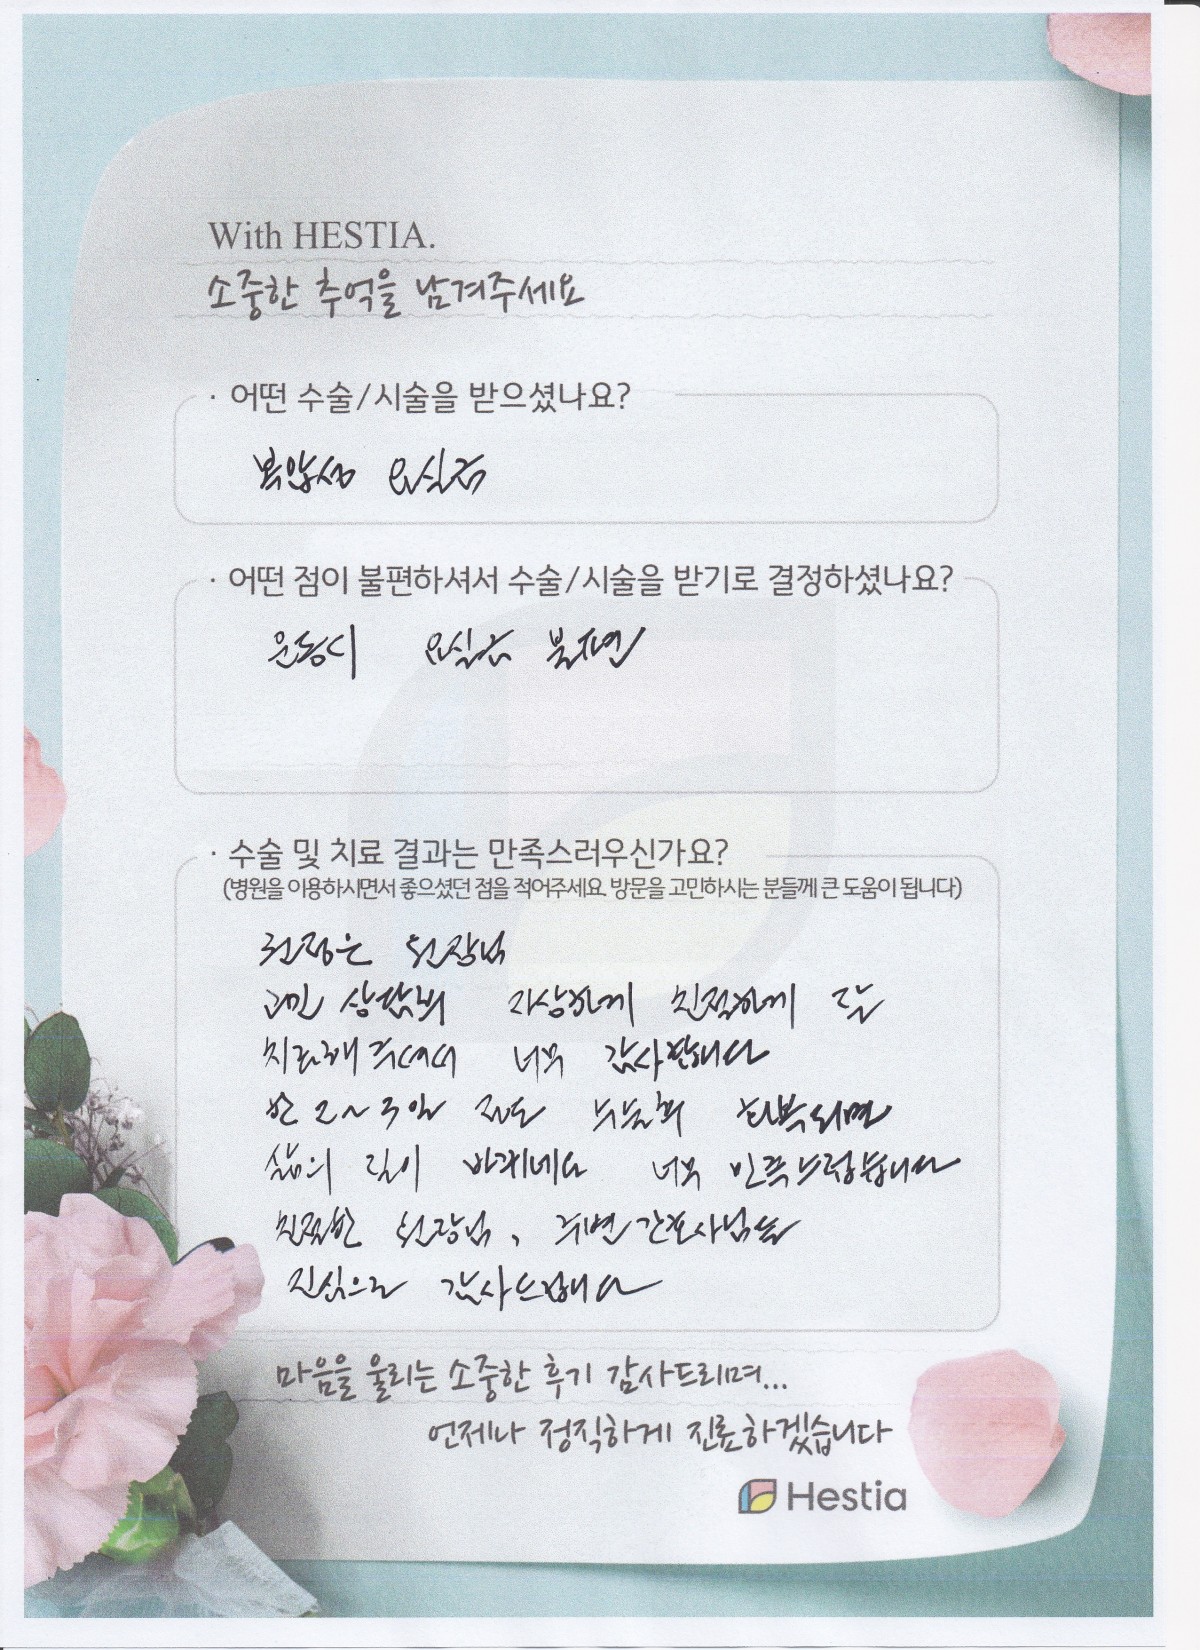 With HESTIA.
소중한 추억을 남겨주세요
· 어떤 수술/시술을 받으셨나요?
복압성 요실금
· 어떤 점이 불편하셔서 수술/시술을 받기로 결정하셨나요?
운동시 요실금 불편
· 수술 및 치료 결과는 만족스러우신가요?
(병원을 이용하시면서 좋으셨던 점을 적어주세요. 방문을 고민하시는 분들께 큰 도움이 됩니다)
원장님
고민 상담부터 자상하게 친절하게 잘
치료해 주셔서 너무 감사합니다
한 2~3일 정도 회복되면
삶의 질이 바뀌네요 너무 만족스럽습니다
친절한 원장님, 주변 간호사님들
진심으로 감사드립니다
마음을 울리는 소중한 후기 감사드리며...
언제나 정직하게 진료하겠습니다
Hestia